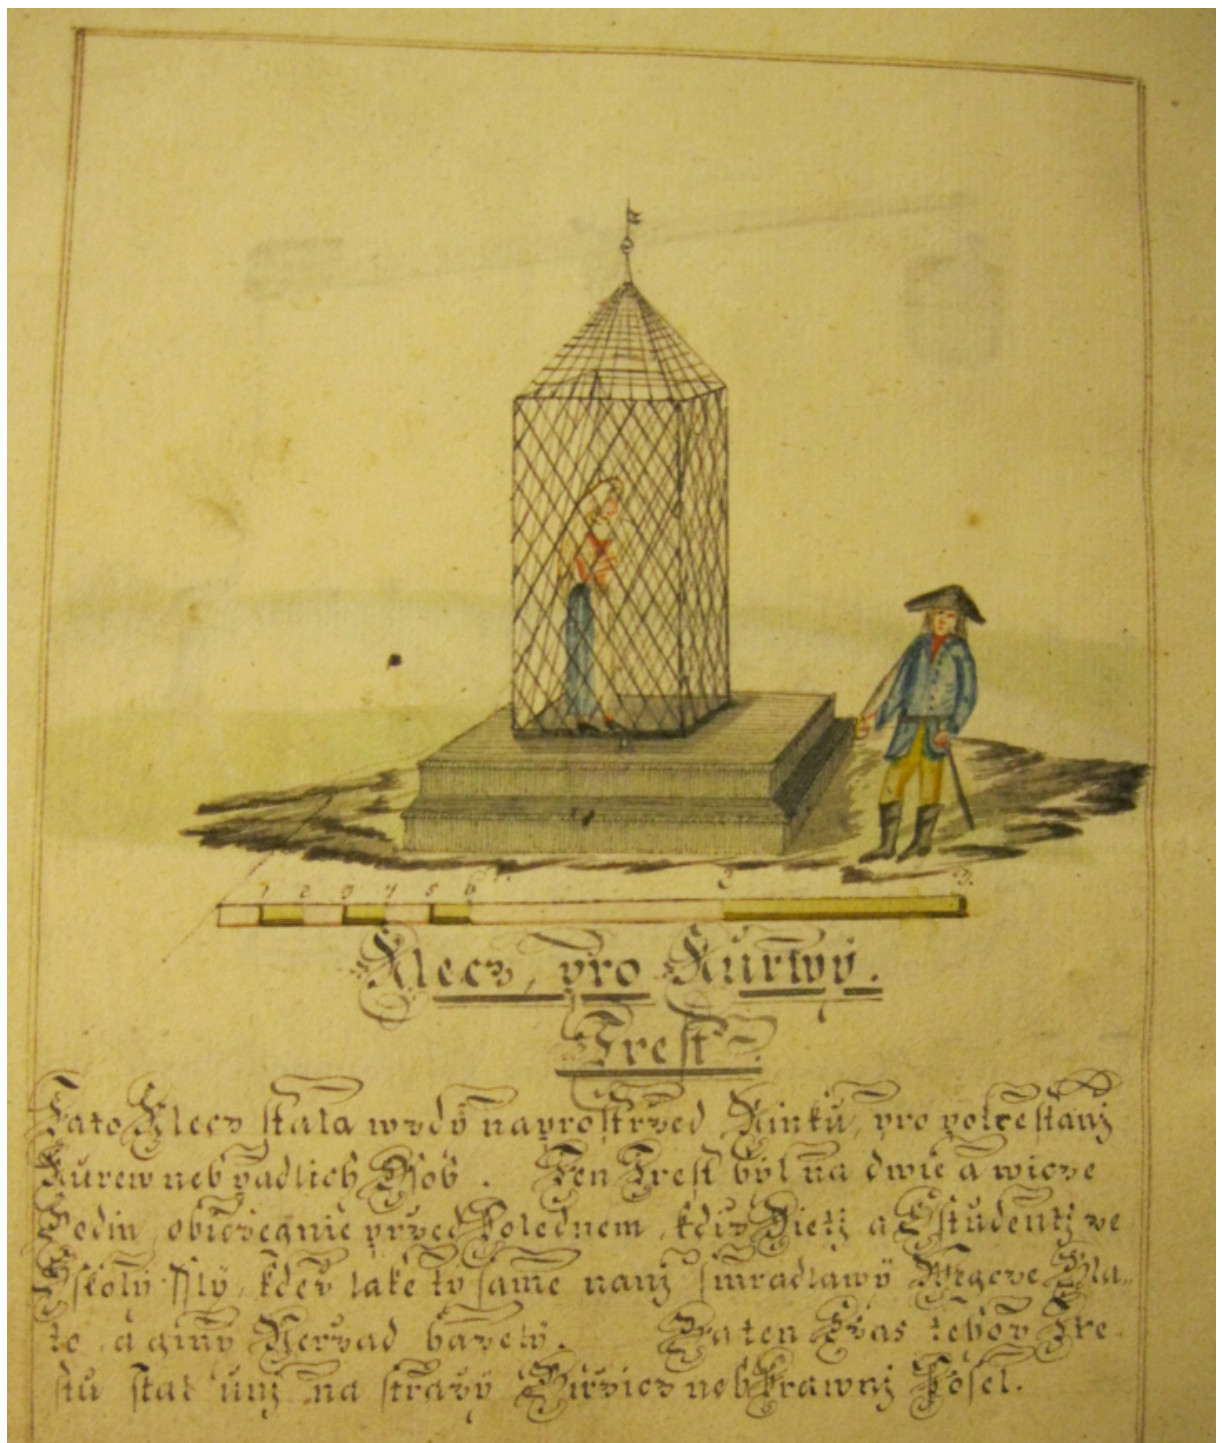 1 2 3 4 5 6 2 3.
Klecz, pro Kurwy.
Trest.
Tato Klecz stala wzdy naprostrzed Rinku, pro potrestanj
Kurew neb padlich Rob. Ten Trest byl na dwie a wicze
hodin, obiczegnie przed Polednem, kdiz Dietj a Studentj ze
Sskoly ssly, kderz take ty same nanj smradlawy Wegcze Bla„
to, a giny Nerzad hazely. Za ten Czas tehoz Tre
stu stal unj na strazy Birzicz neb Prawnj Posel.